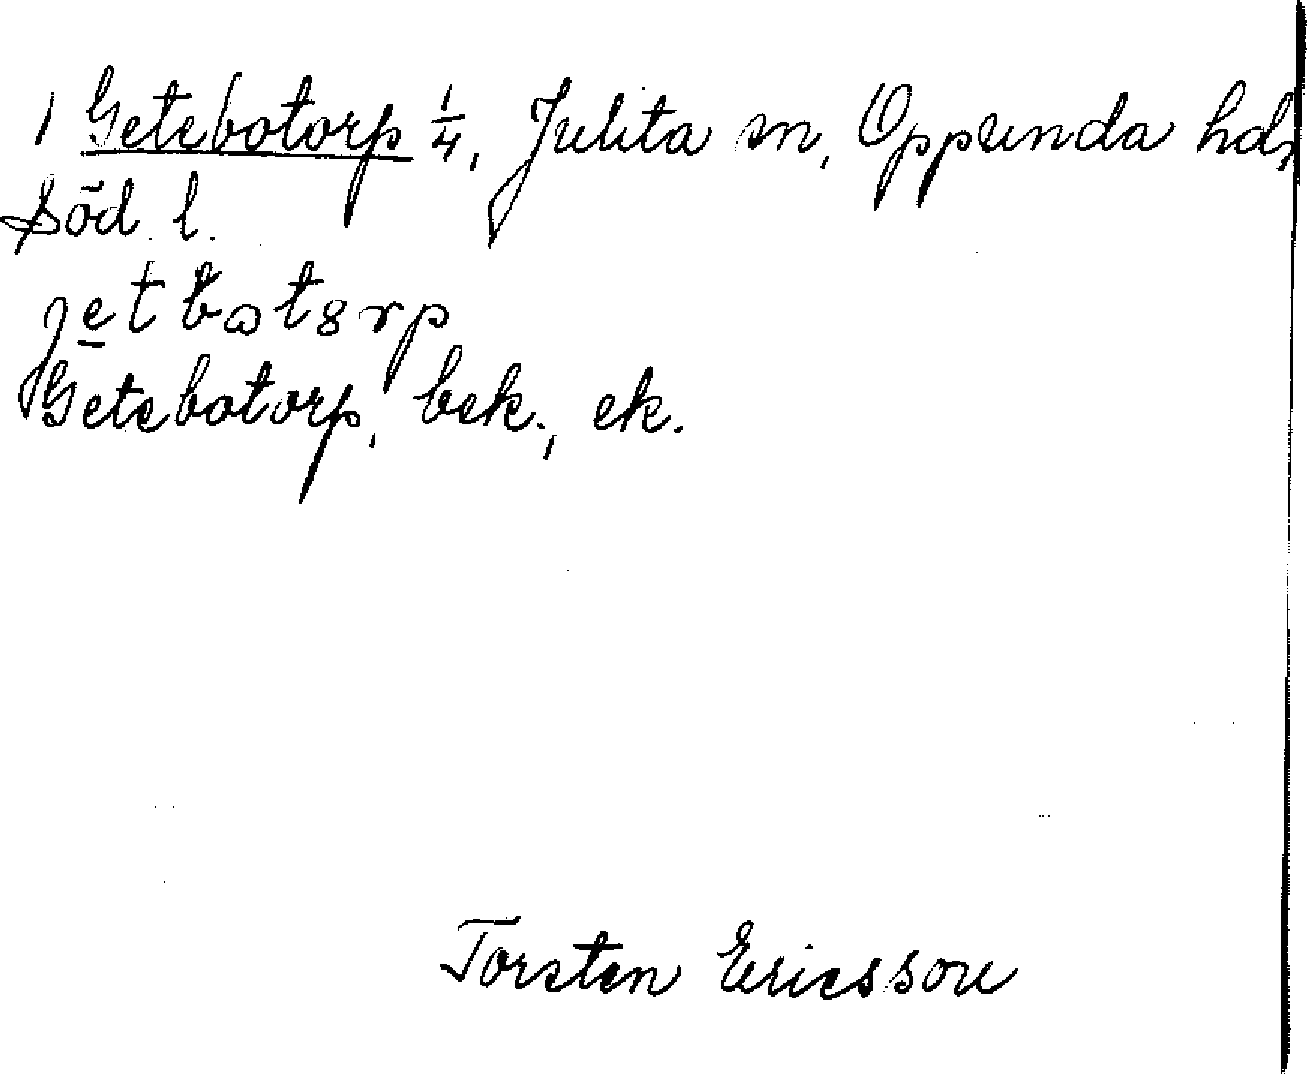 1 Getebotorp 1/4, Julita sn, Oppunda hd,
Söd. l.
je̲tbωt8rp
Getebotorp, bek., ek.
Torsten Ericsson